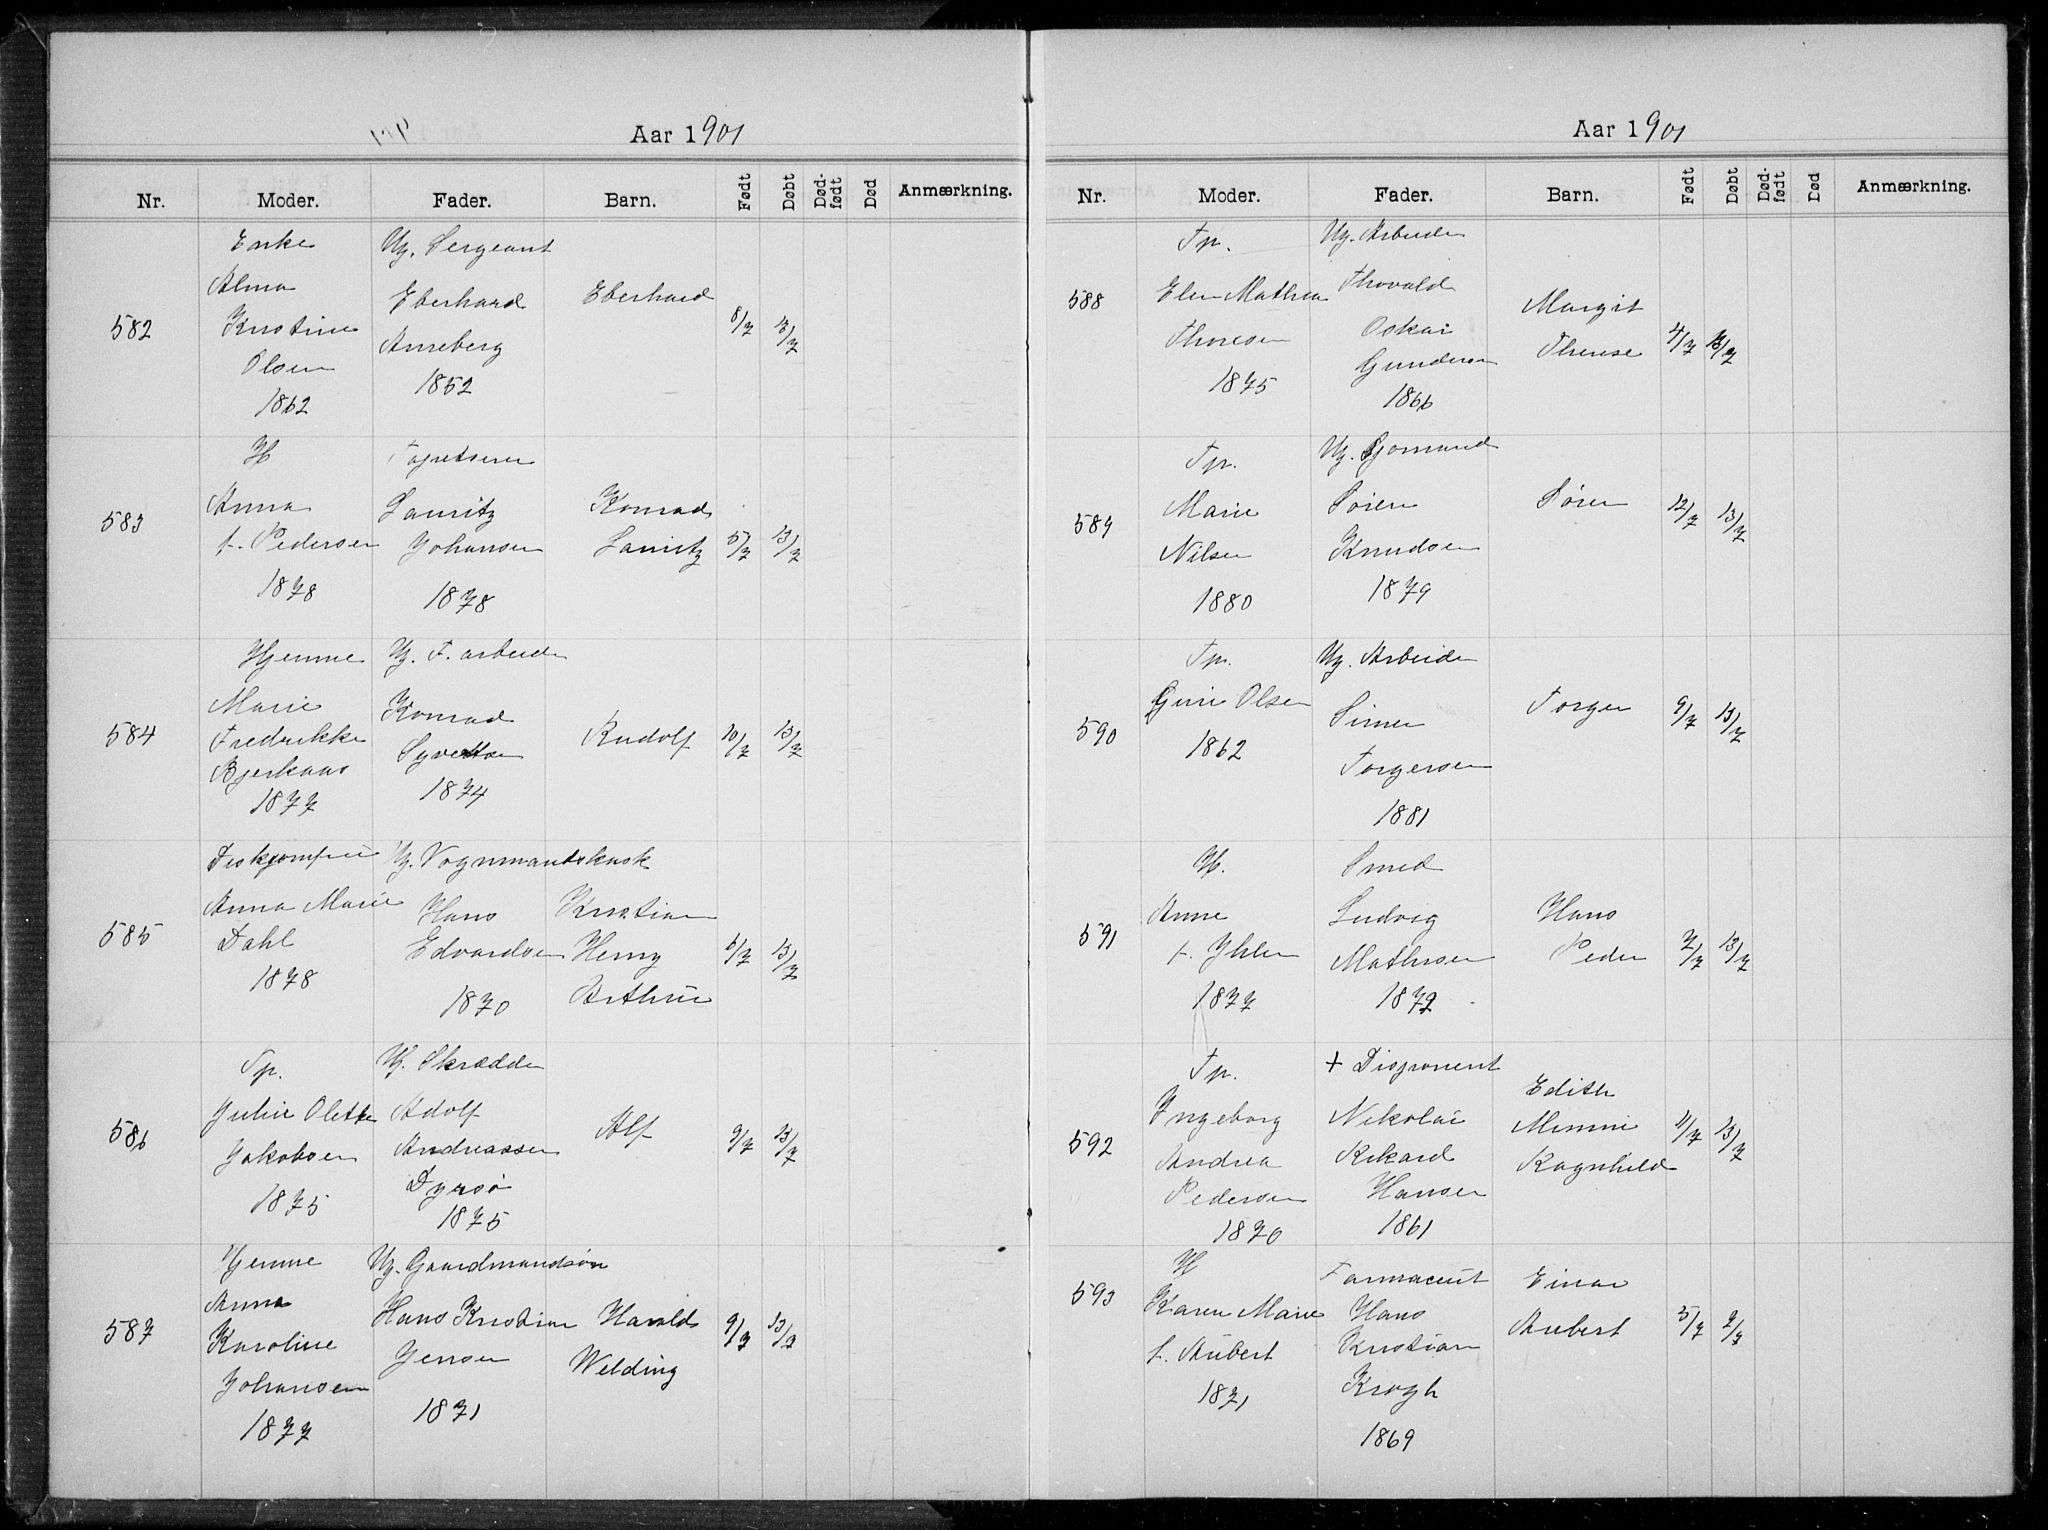 Aar 1901
Nr. Moder. Fader. Barn. Født Døbt Død-født Død Anmærkning.
582
Enke
Alma
Kristine
Olsen
1862
Ug. Sergeant
Eberhard
Anneberg
1852
Eberhard
8/7
583
H
Anna
f. Pedersen
1878
Lauritz
Johansen
1878
Konrad
Lauritz
5/7 13/7
584
Hjemme
Marie
Fredrikke
Bjerkaas
1877
Ug. F. arbeider
Konrad
Syvertsen
1874
Rudolf
10/7 13/7
585
Anna Marie
Dahl
1878
Ug. Vognmandskusk
Hans
Edvardsen
1870
Kristian
Henry
Arthur
6/7 13/7
586
Tp.
Julie Olette
Jakobsen
1875
Ug. Skrædder
Adolf
Andreassen
Dyrsø
1875
Alf
9/7 13/7
587
Hjemme
Anna
Karoline
Johansen
1877
Ug. Gaardmandsøn
Hans Kristian
Jensen
1871
Harald
Welding
9/7 13/7
Aar 1901
Nr. Moder. Fader. Barn. Født Døbt Død-født Død Anmærkning.
588
Tp.
Elen Mathea
Thoresen
1875
Ug. Arbeider
Thovald
Oskar
Gundersen
1866
Margit
Therese
4/7 13/7
589
Tp.
Marie
Nilsen
1880
Ug. Sjømand
Søren
Knudsen
1879
Søren
12/7 13/7
590
Tp.
Gurie Olsen
1862
Ug. Arbeider
Simen
Torgersen
1881
Torger
9/7 13/7
591
H.
Anne
f. Yhlen
1877
Smed
Ludvig
Mathisen
1872
Hans
Peder
7/7 13/7
592
Tp.
Ingeborg
Andrea
Pedersen
1870
+ Disponent
Nikolai
Rikard
Hansen
1861
Edith
Mimmi
Ragnhild
11/7 13/7
593
H
Karen Marie
f. Aubert
1871
Farmaceut
Hans
Kristian
Krogh
1869
Einar
Aubert
5/7